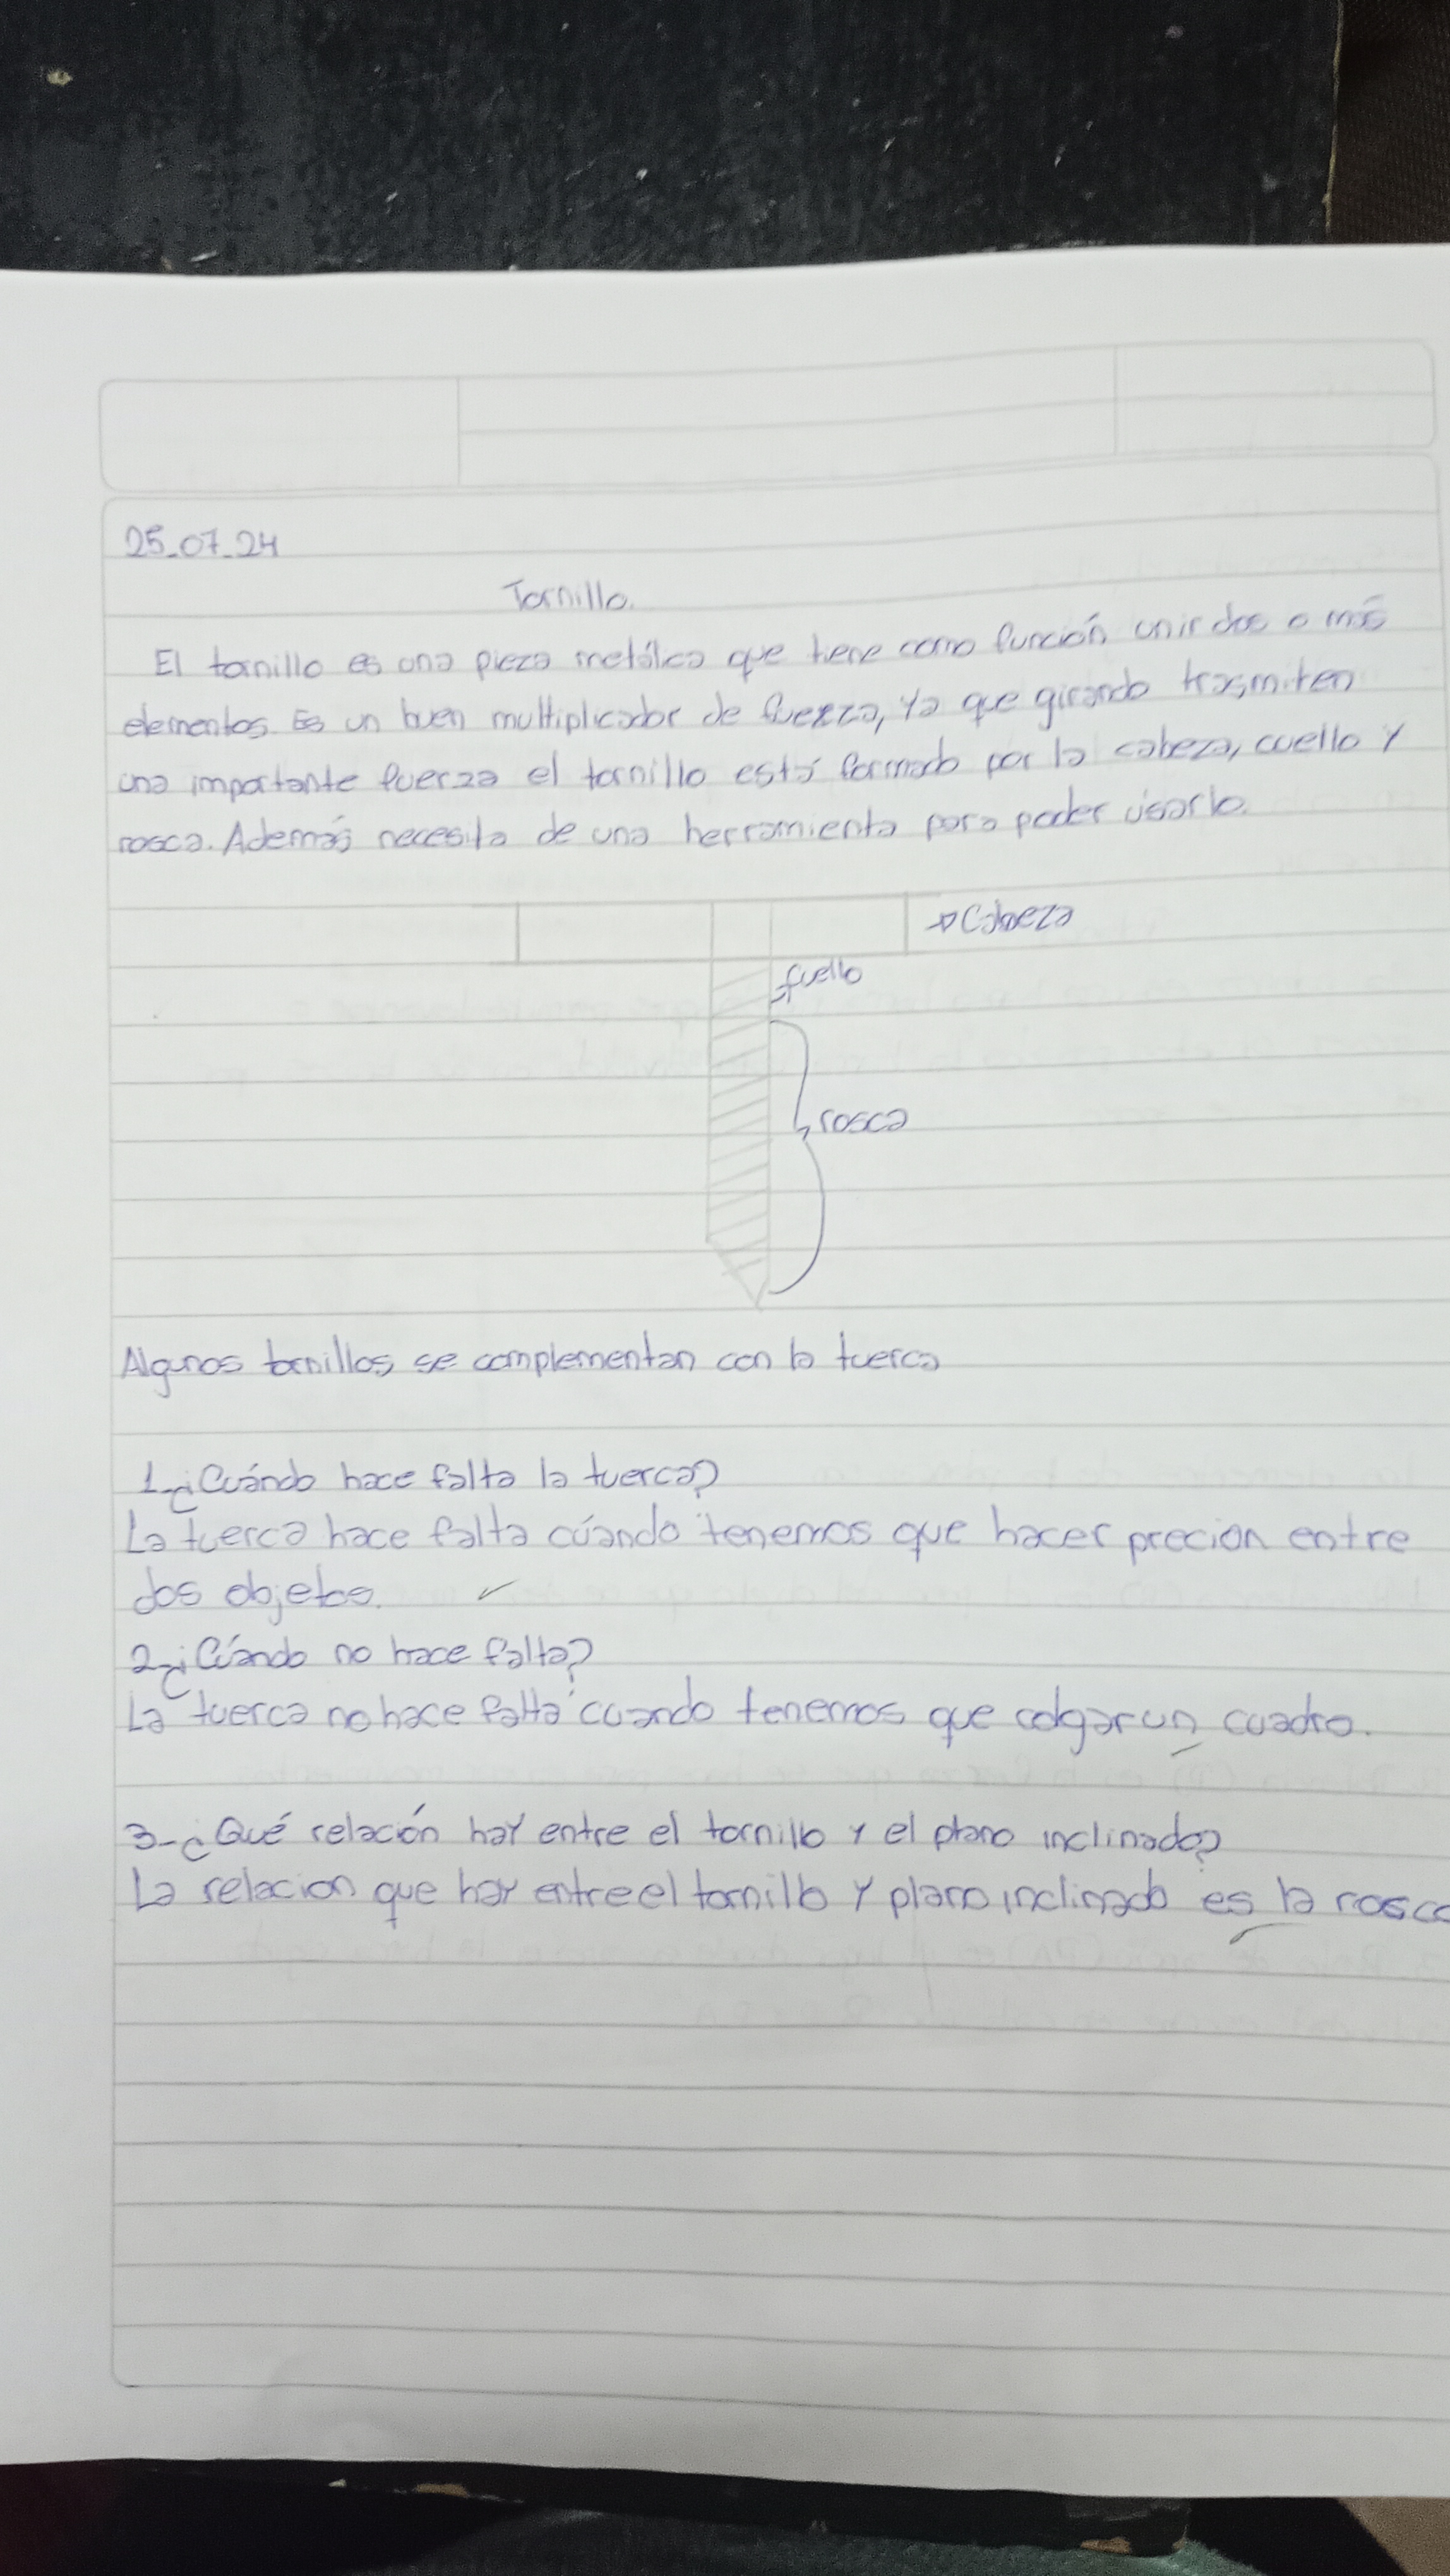 25-07-24
Tornillo.
El tornillo es una pieza metálica que tiene como función unir dos o más
elementos. Es un buen multiplicador de fuerza, ya que girando trasmiten
una importante fuerza el tornillo está formado por la cabeza, cuello y
rosca. Además necesita de una herramienta para poder usarlo.
Cabeza
cuello
rosca
Algunos tornillos se complementan con la tuerca
1-¿Cuándo hace falta la tuerca?
La tuerca hace falta cúando tenemos que hacer precion entre
dos objetos.
2-¿Cúando no hace falta?
La tuerca no hace falta cuando tenemos que colgar un cuadro.
3-¿Qué relación hay entre el tornillo y el plano inclinado?
La relacion que hay entre el tornillo y plano inclinado es la rosca